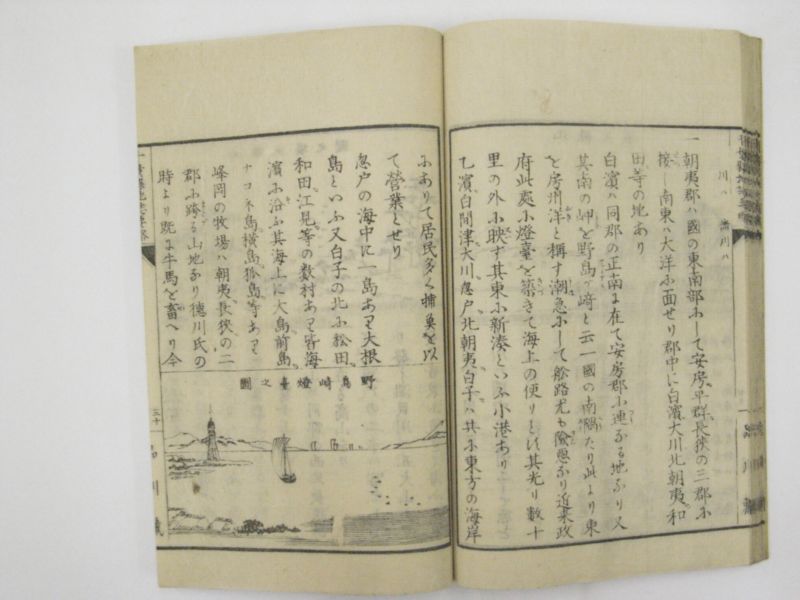 一朝夷郡ハ國の東南部ふして安房平群長狭の三郡ふ
接し南東ハ大洋ふ面せり郡中に白濱大川北朝夷和
田等の地あり
白濱ハ同郡の正南ま在て安房郡ふ連なる地なり又
其南の岬を野島ヶ﨑と云一國の南隅たり此より東
を房州洋と稱す潮急ふして舩路尤も險惡なり近來政
府此處ふ燈臺を築きて海上の便りとし其光り數十
里の外ふ映ず其東ふ新湊といふ小港あり
乙濱白間津大川忽戸北朝夷白子ハ共ふ東方の海岸
ふありて居民多く捕魚を以
て營業とせり
忽戸の海中に一島あり大根
島といふ又白子の北ふ松田
和田江見等の数村あり皆海
濱ふ沿ふ其海上に大島前島
ナコネ島横島狐島等あり
峰岡の牧場ハ朝夷長狭の二
郡ふ跨る山地なり德川氏の
時より既ま牛馬を畜へり今
野島崎燈臺之圖
三十